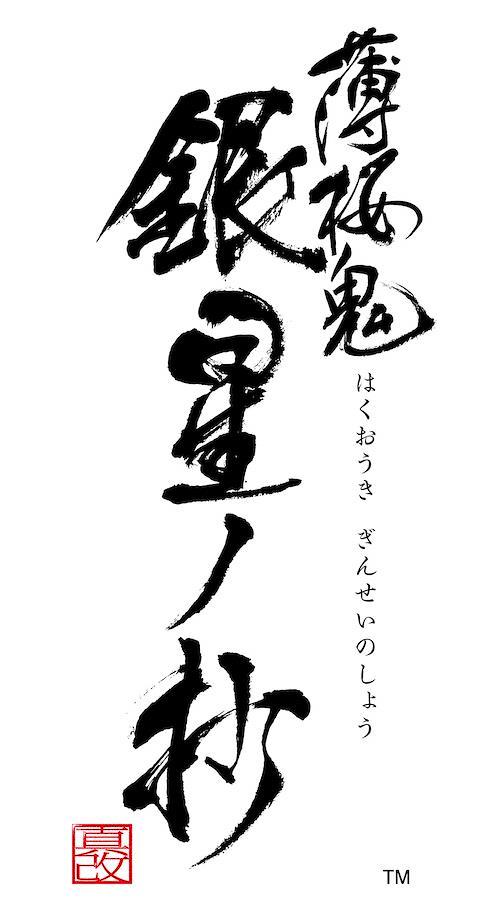 薄桜鬼
はくおうき　ぎんせいのしょう
銀星ノ抄
真改
TM